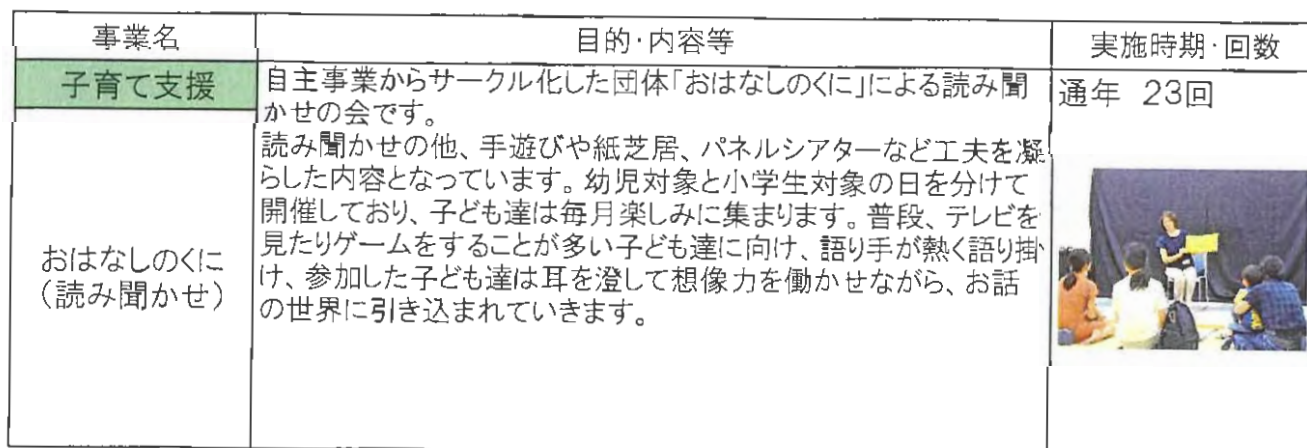 事業名
目的・内容等
実施時期・回数
子育て支援
自主事業からサークル化した団体「おはなしのくに」による読み聞
かせの会です。
読み聞かせの他、手遊びや紙芝居、パネルシアターなど工夫を凝
らした内容となっています。幼児対象と小学生対象の日を分けて
開催しており、子ども達は毎月楽しみに集まります。普段、テレビを
見たりゲームをすることが多い子ども達に向け、語り手が熱く語り掛
け、参加した子ども達は耳を澄して想像力を働かせながら、お話
の世界に引き込まれていきます。
通年 23回
おはなしのくに
（読み聞かせ）